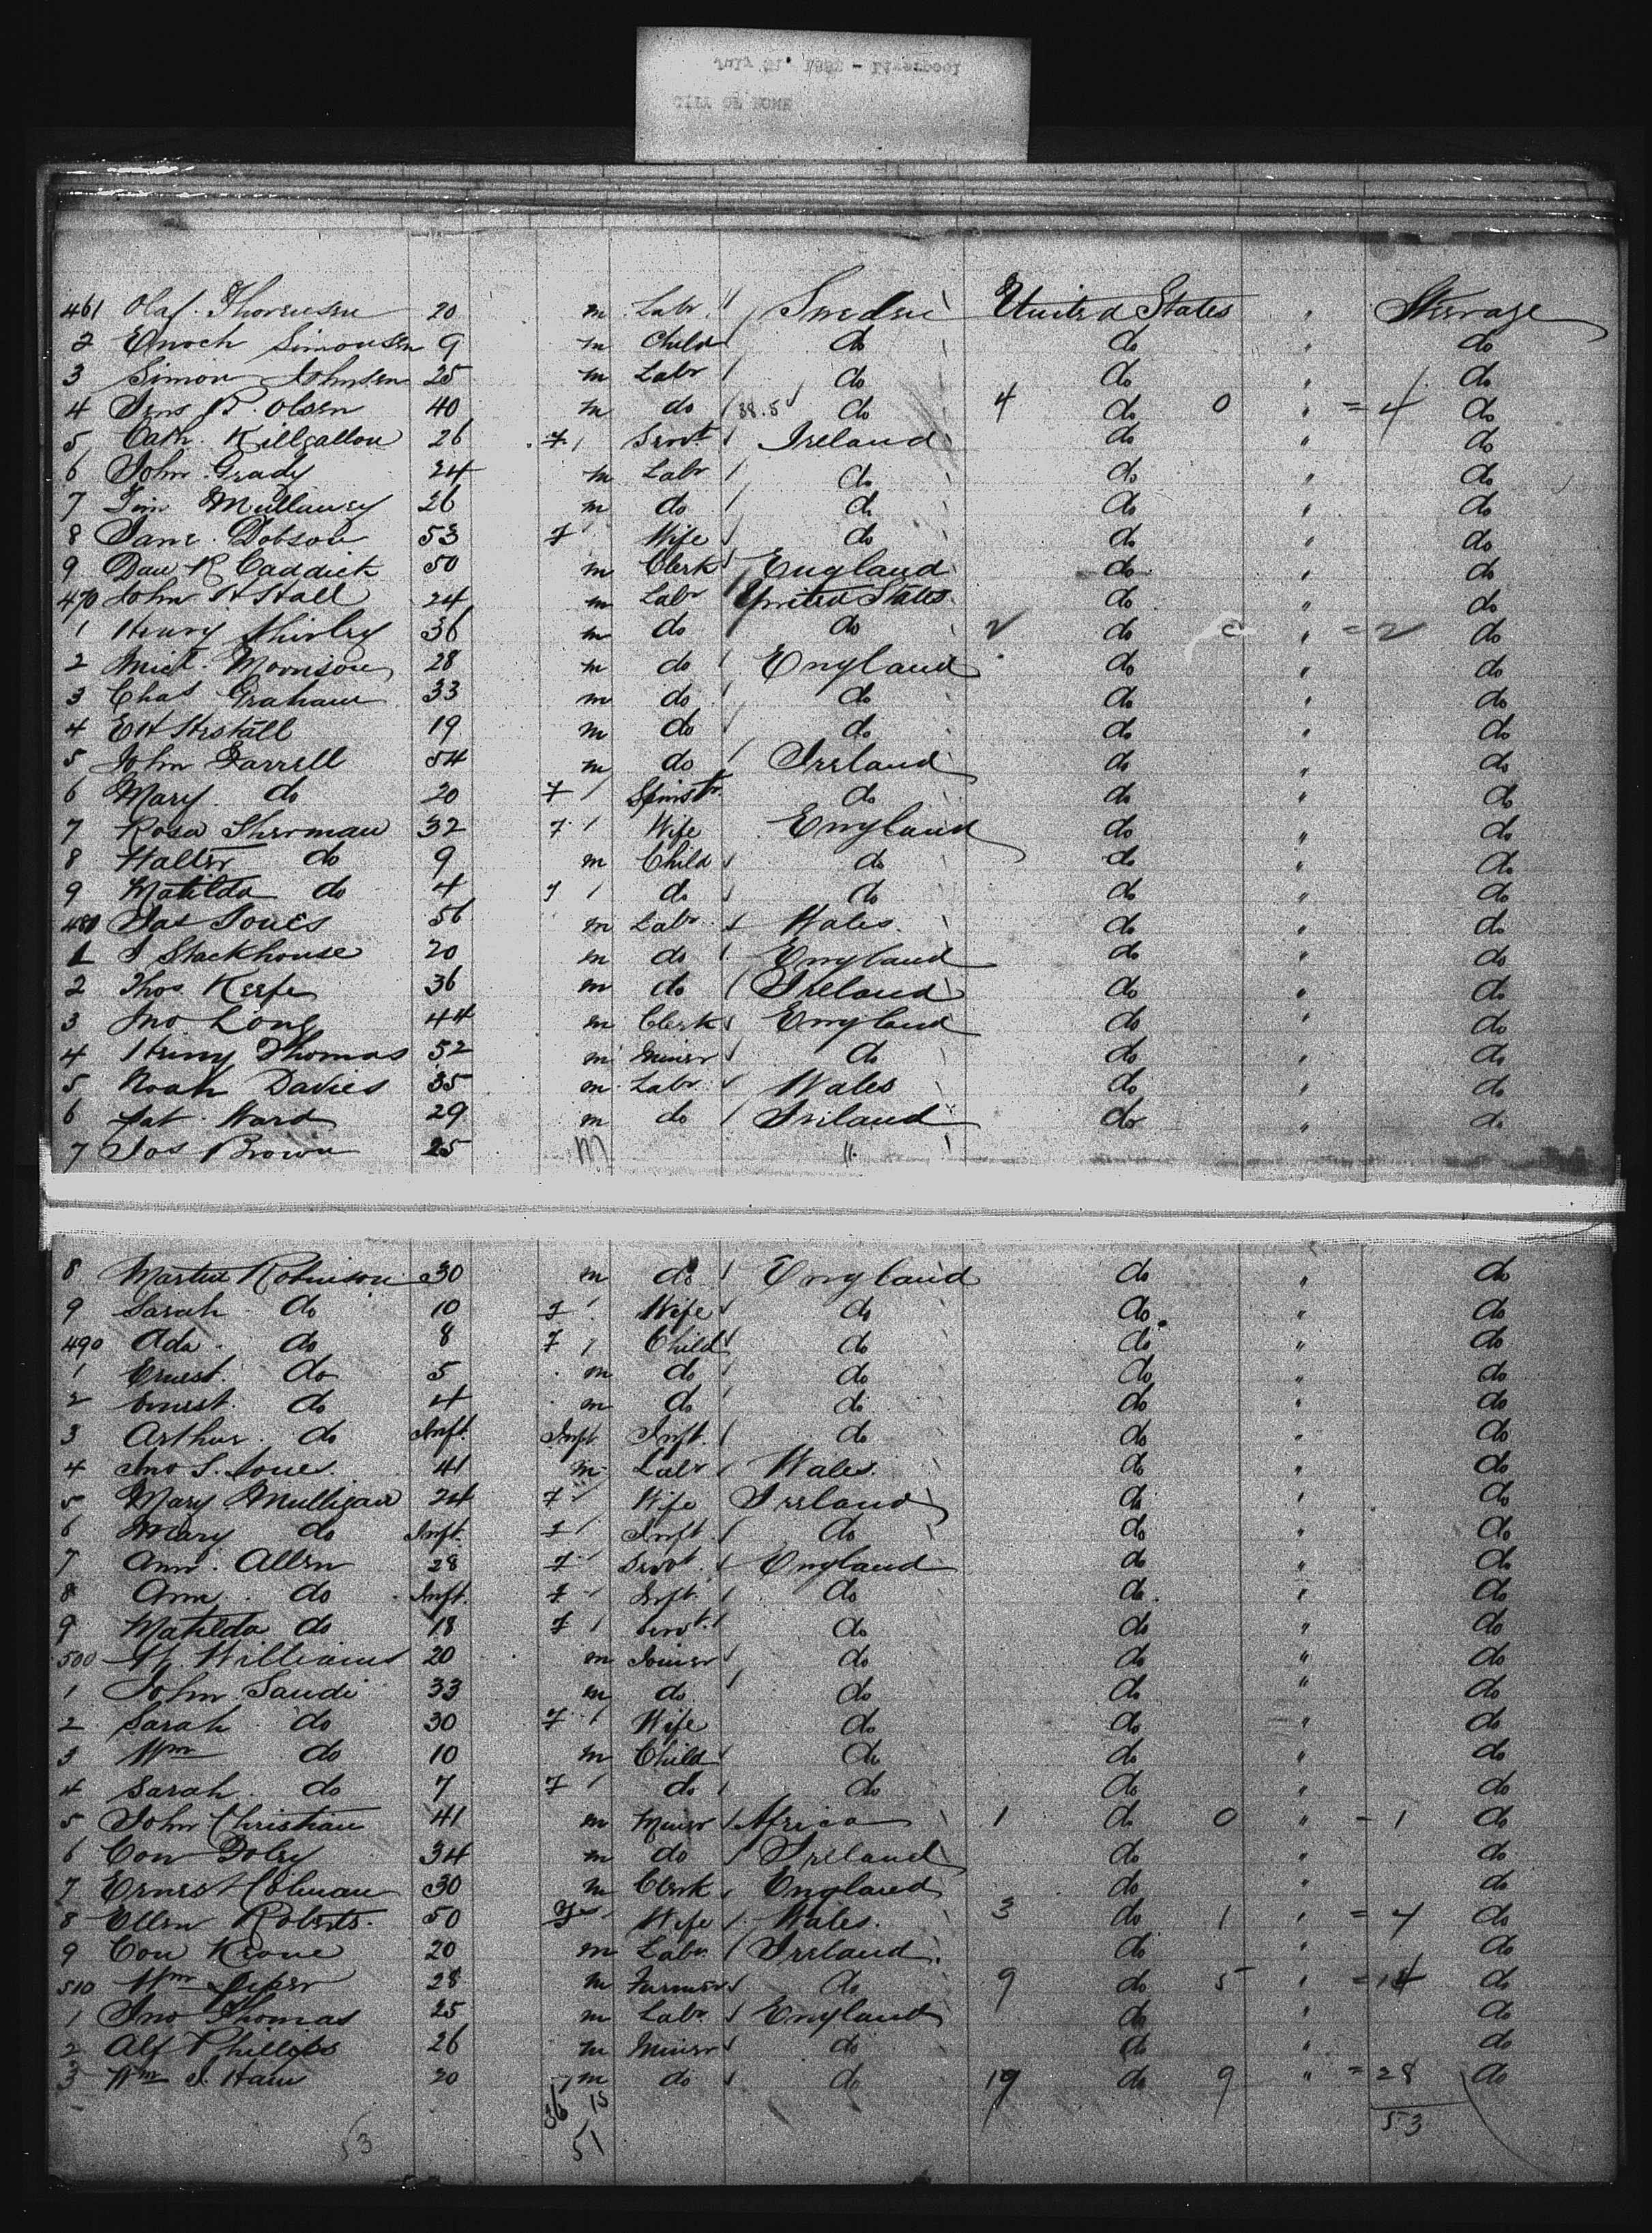 461 Olaf Thorensen 20 m Labr Sweden United States " Steerage
2 Enoch Simonsen 9 m Child do do " do
3 Simon Johnsen 25 m Labr do do " do
4 Jens P. Olsen 40 m do 38.5 do 4 do 0 " = 4 do
5 Cath. Killgallon 26 F Servt Ireland do " do
6 John Grady 24 m Labr do do " do
7 Tim Mullaney 26 m do do do " do
8 Jane Dobson 53 F Wife do do " do
9 Dan R Caddick 50 m Clerk England do " do
470 John H Hall 24 m Labr United States do " do
1 Henry Shirley 36 m do do 2 do 0 " = 2 do
2 Mick. Morrison 28 m do England do " do
3 Chas Graham 33 m do do do " do
4 E H 19 m do do do " do
5 John Farrell 54 m do Ireland do " do
6 Mary do 20 F Spinstr do do " do
7 Rosa Sherman 32 F Wife England do " do
8 Walter do 9 m Child do do " do
9 Matilda do 4 F do do do " do
480 Jas Jones 56 m Labr Wales do " do
1 J Stackhouse 20 m do England do " do
2 Thos Keefe 36 m do Ireland do " do
3 Jno Long 44 m Clerk England do " do
4 Henry Thomas 52 m Miner do do " do
5 Noah Davies 35 m Labr Wales do " do
6 Pat Ward 29 m do Ireland do " do
7 Jos Brown 25 M "
8 Martin Robinson 30 m do England do " do
9 Sarah do 10 F Wife do do " do
490 Ada do 8 F Child do do " do
1 Ernest do 5 m do do do " do
2 Ernest do 4 m do do do " do
3 Arthur do Inft. Inft Inft. do do " do
4 Jno S. Jones 41 m Labr Wales. do " do
5 Mary Mulligan 24 F Wife Ireland do " do
6 Mary do Inft. F Inft. do do " do
7 Ann Allen 28 F Servt. England do " do
8 Ann do Inft. F Inft. do do " do
9 Matilda do 18 F Servt. do do " do
500 W. Williams 20 m Joiner do do " do
1 John 33 m do do do " do
2 Sarah do 30 F Wife do do " do
3 Wm do 10 m Child do do " do
4 Sarah do 7 F do do do " do
5 John Christian 41 m Miner Africa 1 do 0 " - 1 do
6 Con Foley 34 m do Ireland do " do
7 Ernest Colman 30 m Clerk England do " do
8 Ellen Roberts. 50 F Wife Wales. 3 do 1 " = 4 do
9 Con Keane 20 m Labr Ireland. do " do
510 Wm 28 m Farmer do 9 do 5 " = 14 do
1 Jno Thomas 25 m Labr England do " do
2 Alf Phillips 26 m Miner do do " do
3 Wm J. Ham 20 m do do 19 do 9 " = 28 do
36 15 53
53 51